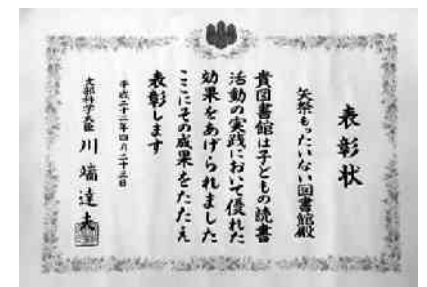 表彰状
矢祭もったいない図書館殿
貴図書館は子どもの読書
活動の実践において優れた
効果をあげられました
ここにその成果をたたえ
表彰します
平成二十二年四月二十三日
文部科学大臣 川端達夫